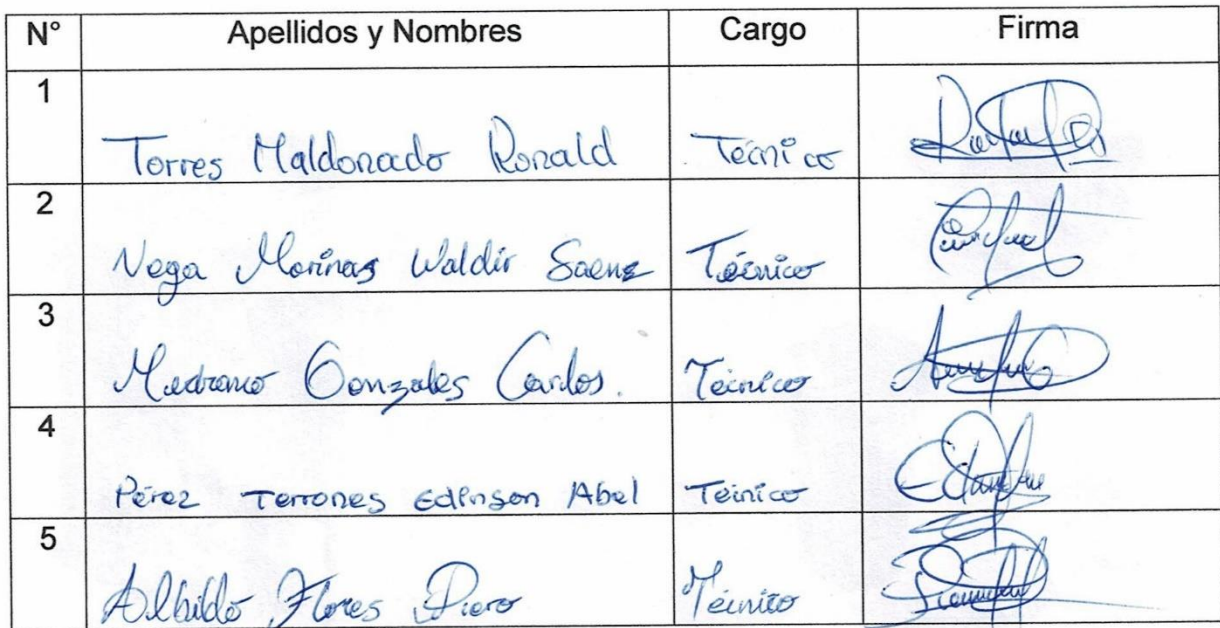 N° Apellidos y Nombres Cargo Firma
1 Torres Maldonado Ronald Técnico
2 Vega Marinas Waldir Saenz Técnico
3 Medrano Gonzales Carlos. Técnico
4 Pérez Terrones Edinson Abel Técnico
5 Albildo Flores Piero Técnico